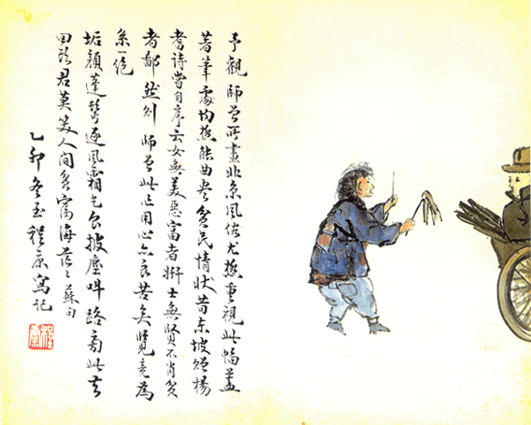 予觀師曾所畫北京風俗尤極重視此幅蓋
著筆處均極能曲盡貧民情狀昔東坡贈楊
耆詩嘗自序云女無美惡富者妍士無賢不肖貧
者鄙然則師曾此作用心亦良苦矣覽竟為
系一絕
垢顏蓬鬢逐風霜乞食披塵叫路旁此去
回頭君莫笑人間貧富海茫々蘇句
乙卯冬至程康寫記